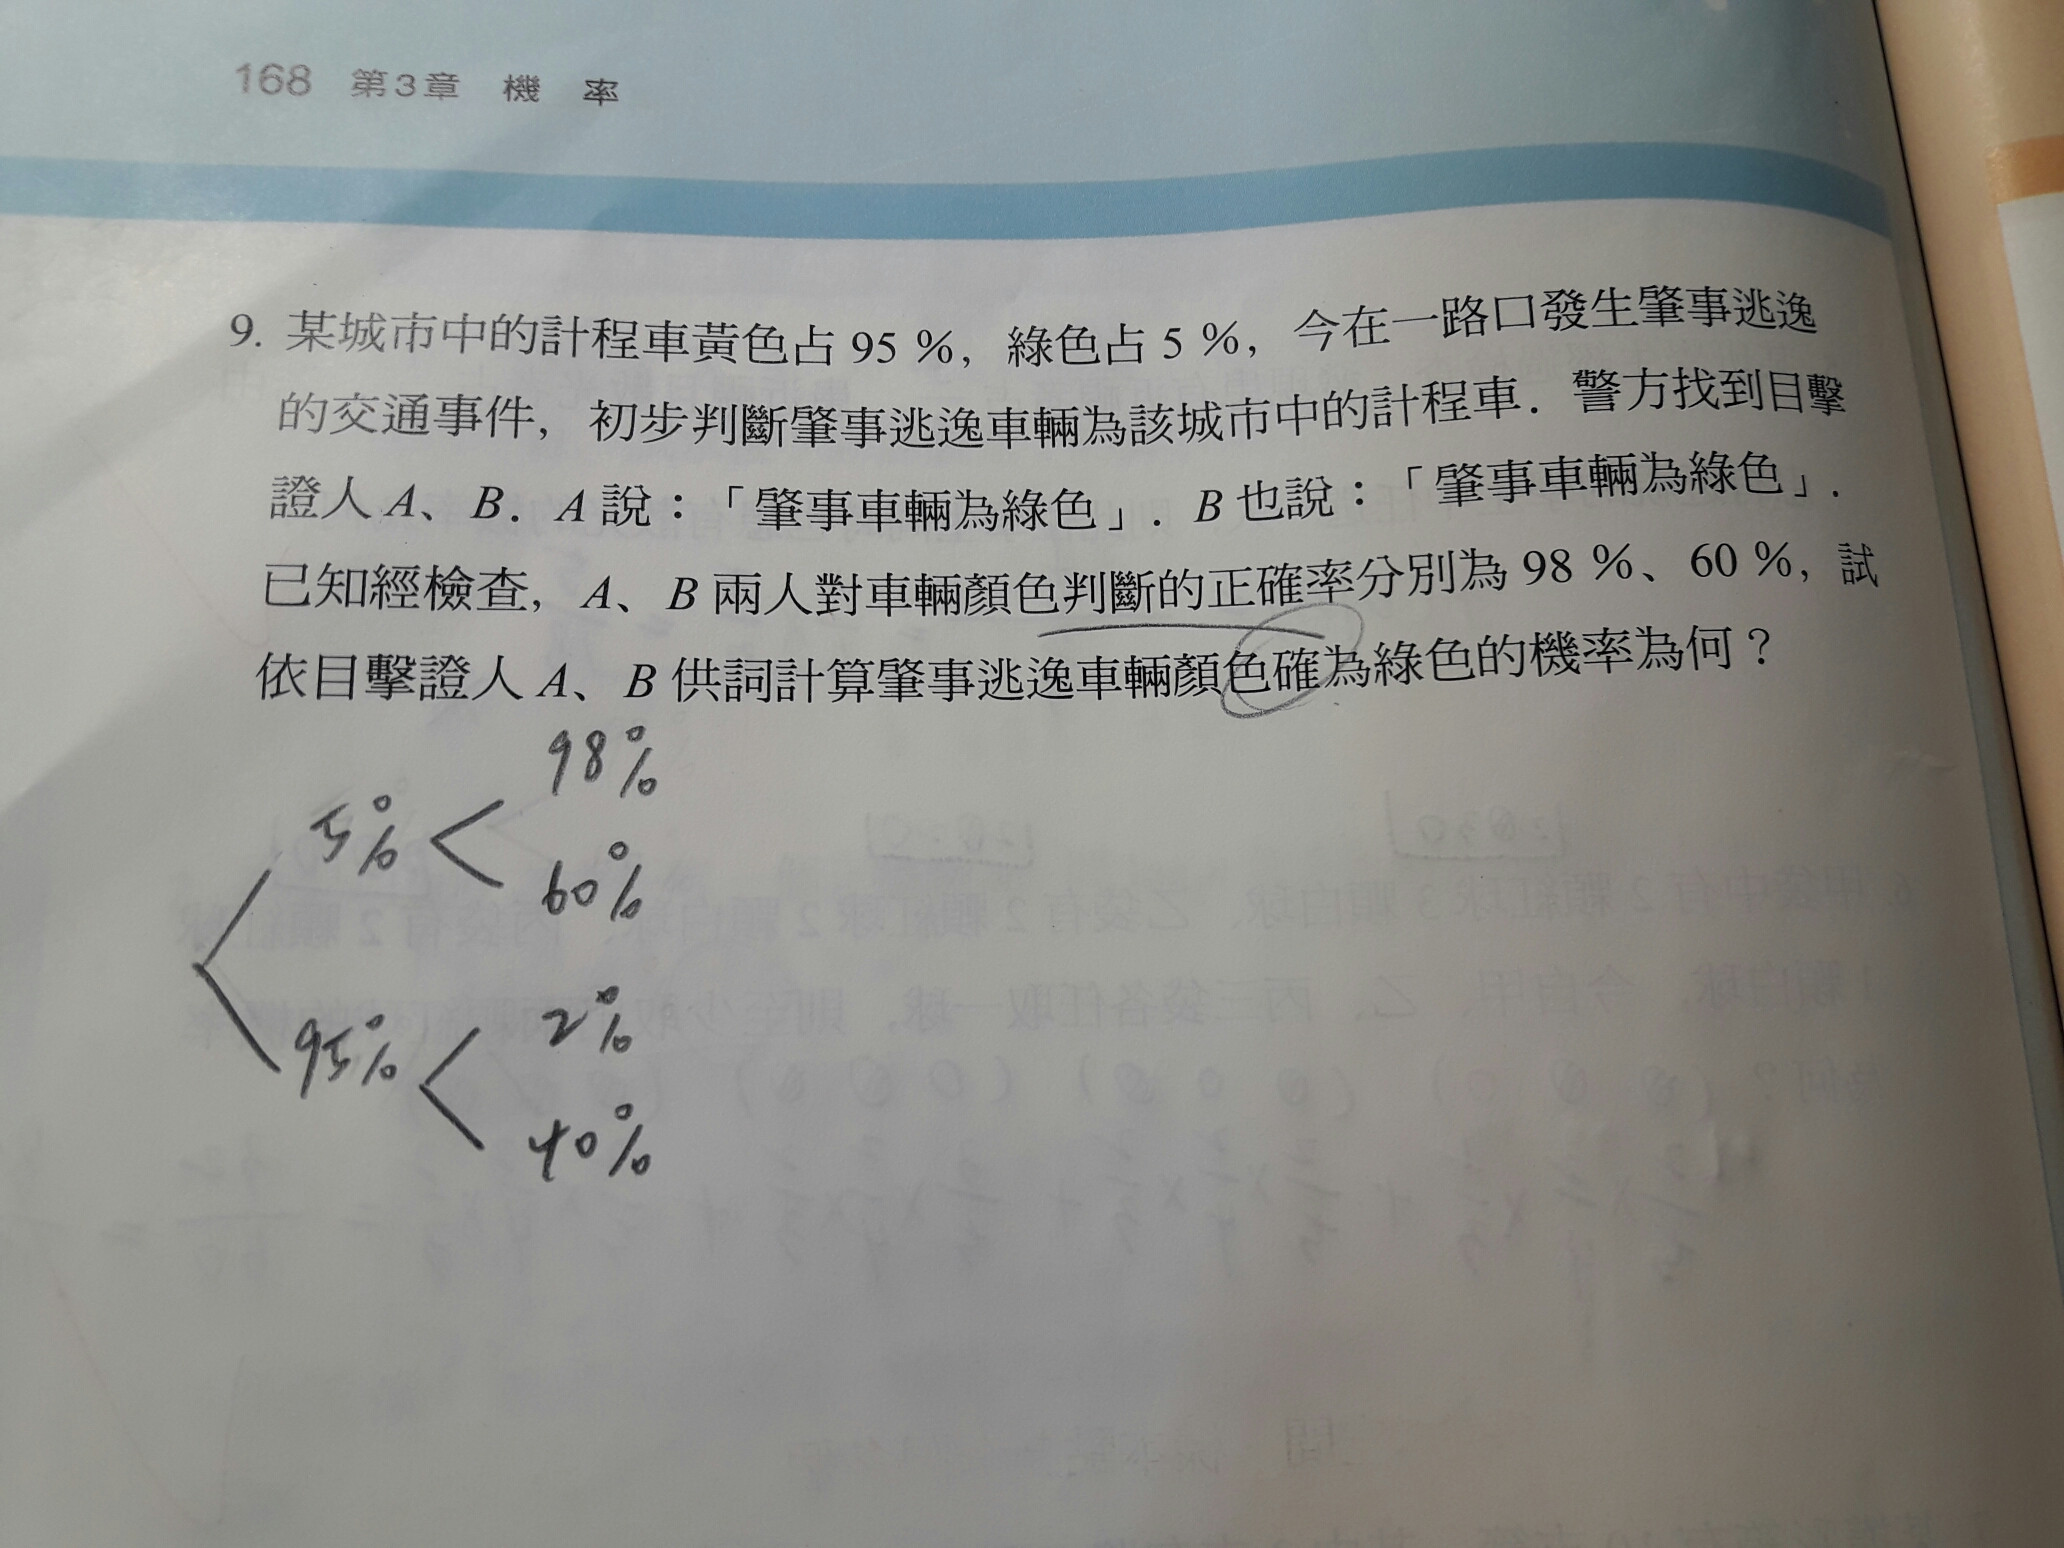 168 第3章 機 率
9. 某城市中的計程車黃色占 95 %，綠色占 5 %，今在一路口發生肇事逃逸
的交通事件，初步判斷肇事逃逸車輛為該城市中的計程車．警方找到目擊
證人 A、B．A 說：「肇事車輛為綠色」．B 也說：「肇事車輛為綠色」．
已知經檢查，A、B 兩人對車輛顏色判斷的正確率分別為 98 %、60 %，試
依目擊證人 A、B 供詞計算肇事逃逸車輛顏色確為綠色的機率為何？
98%
5%
60%
2%
95%
40%